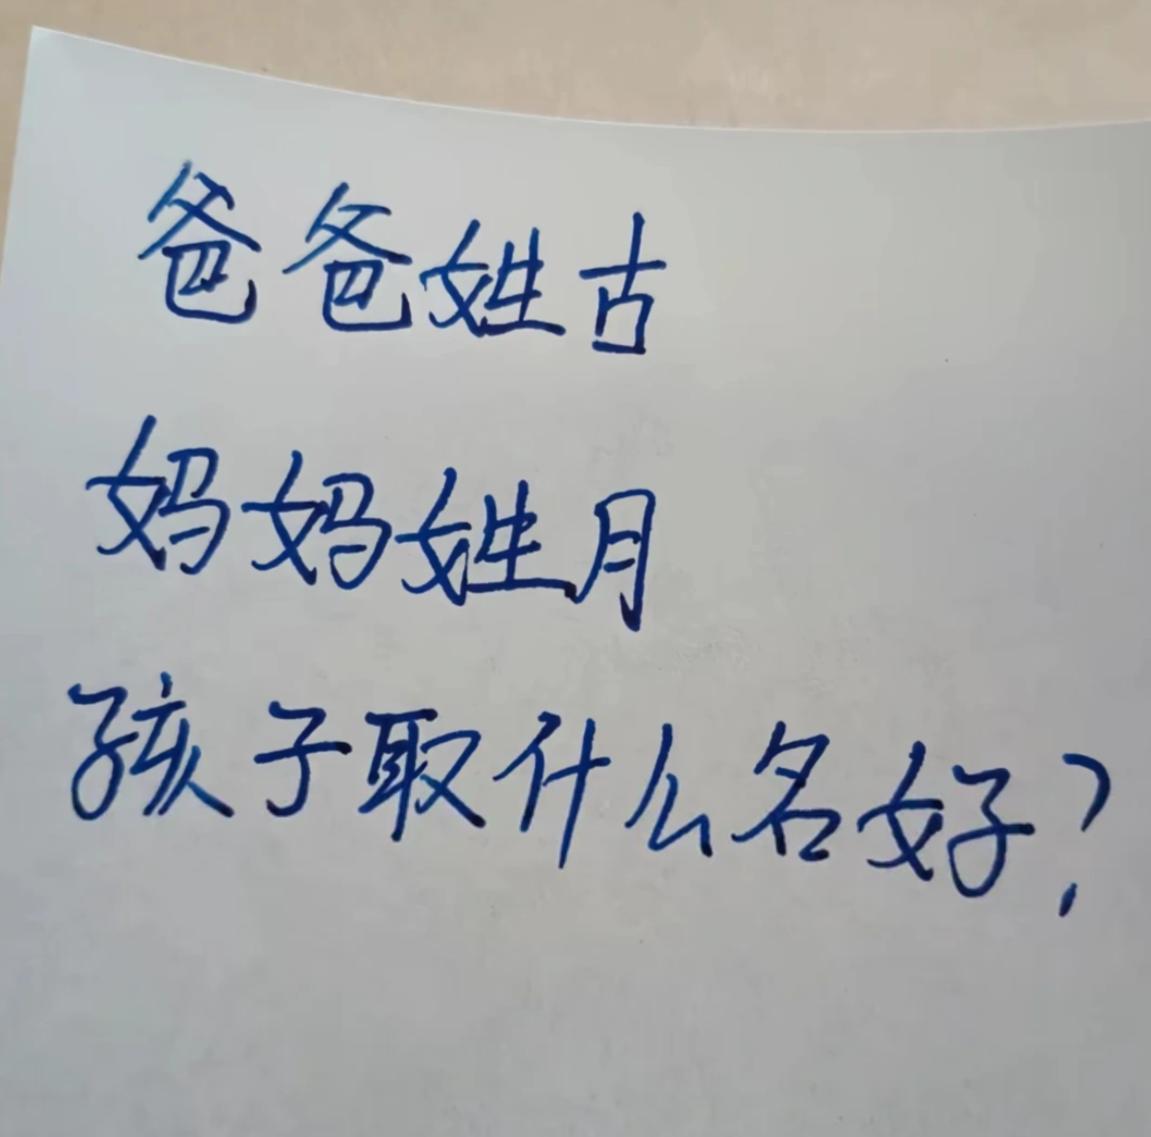 爸爸姓古
妈妈姓月
孩子取什么名好?